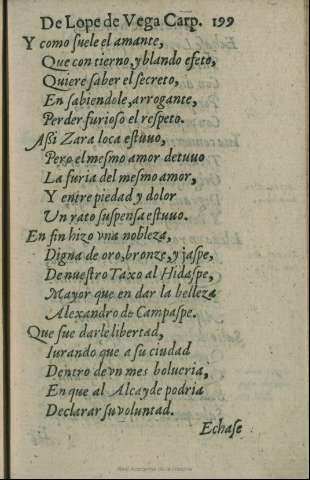 De Lope de Vega Carp. 199
Y como suele el amante,
Que con tierno, y blando efeto,
Quiere saber el secreto,
En sabiendole, arrogante,
Perder furioso el respeto.
Assi Zara loca estuuo,
Pero el mesmo amor detuuo
La furia del mesmo amor,
Y entre piedad y dolor
Un rato suspensa estuuo.
En fin hizo vna nobleza,
Digna de oro, bronze, y jaspe,
De nuestro Taxo al Hidaspe,
Mayor que en dar la belleza
Alexandro de Campaspe.
Que fue darle libertad,
Iurando que a su ciudad
Dentro de vn mes bolueria,
En que al Alcayde podria
Declarar su voluntad.
Echase
Real Academia de la Historia